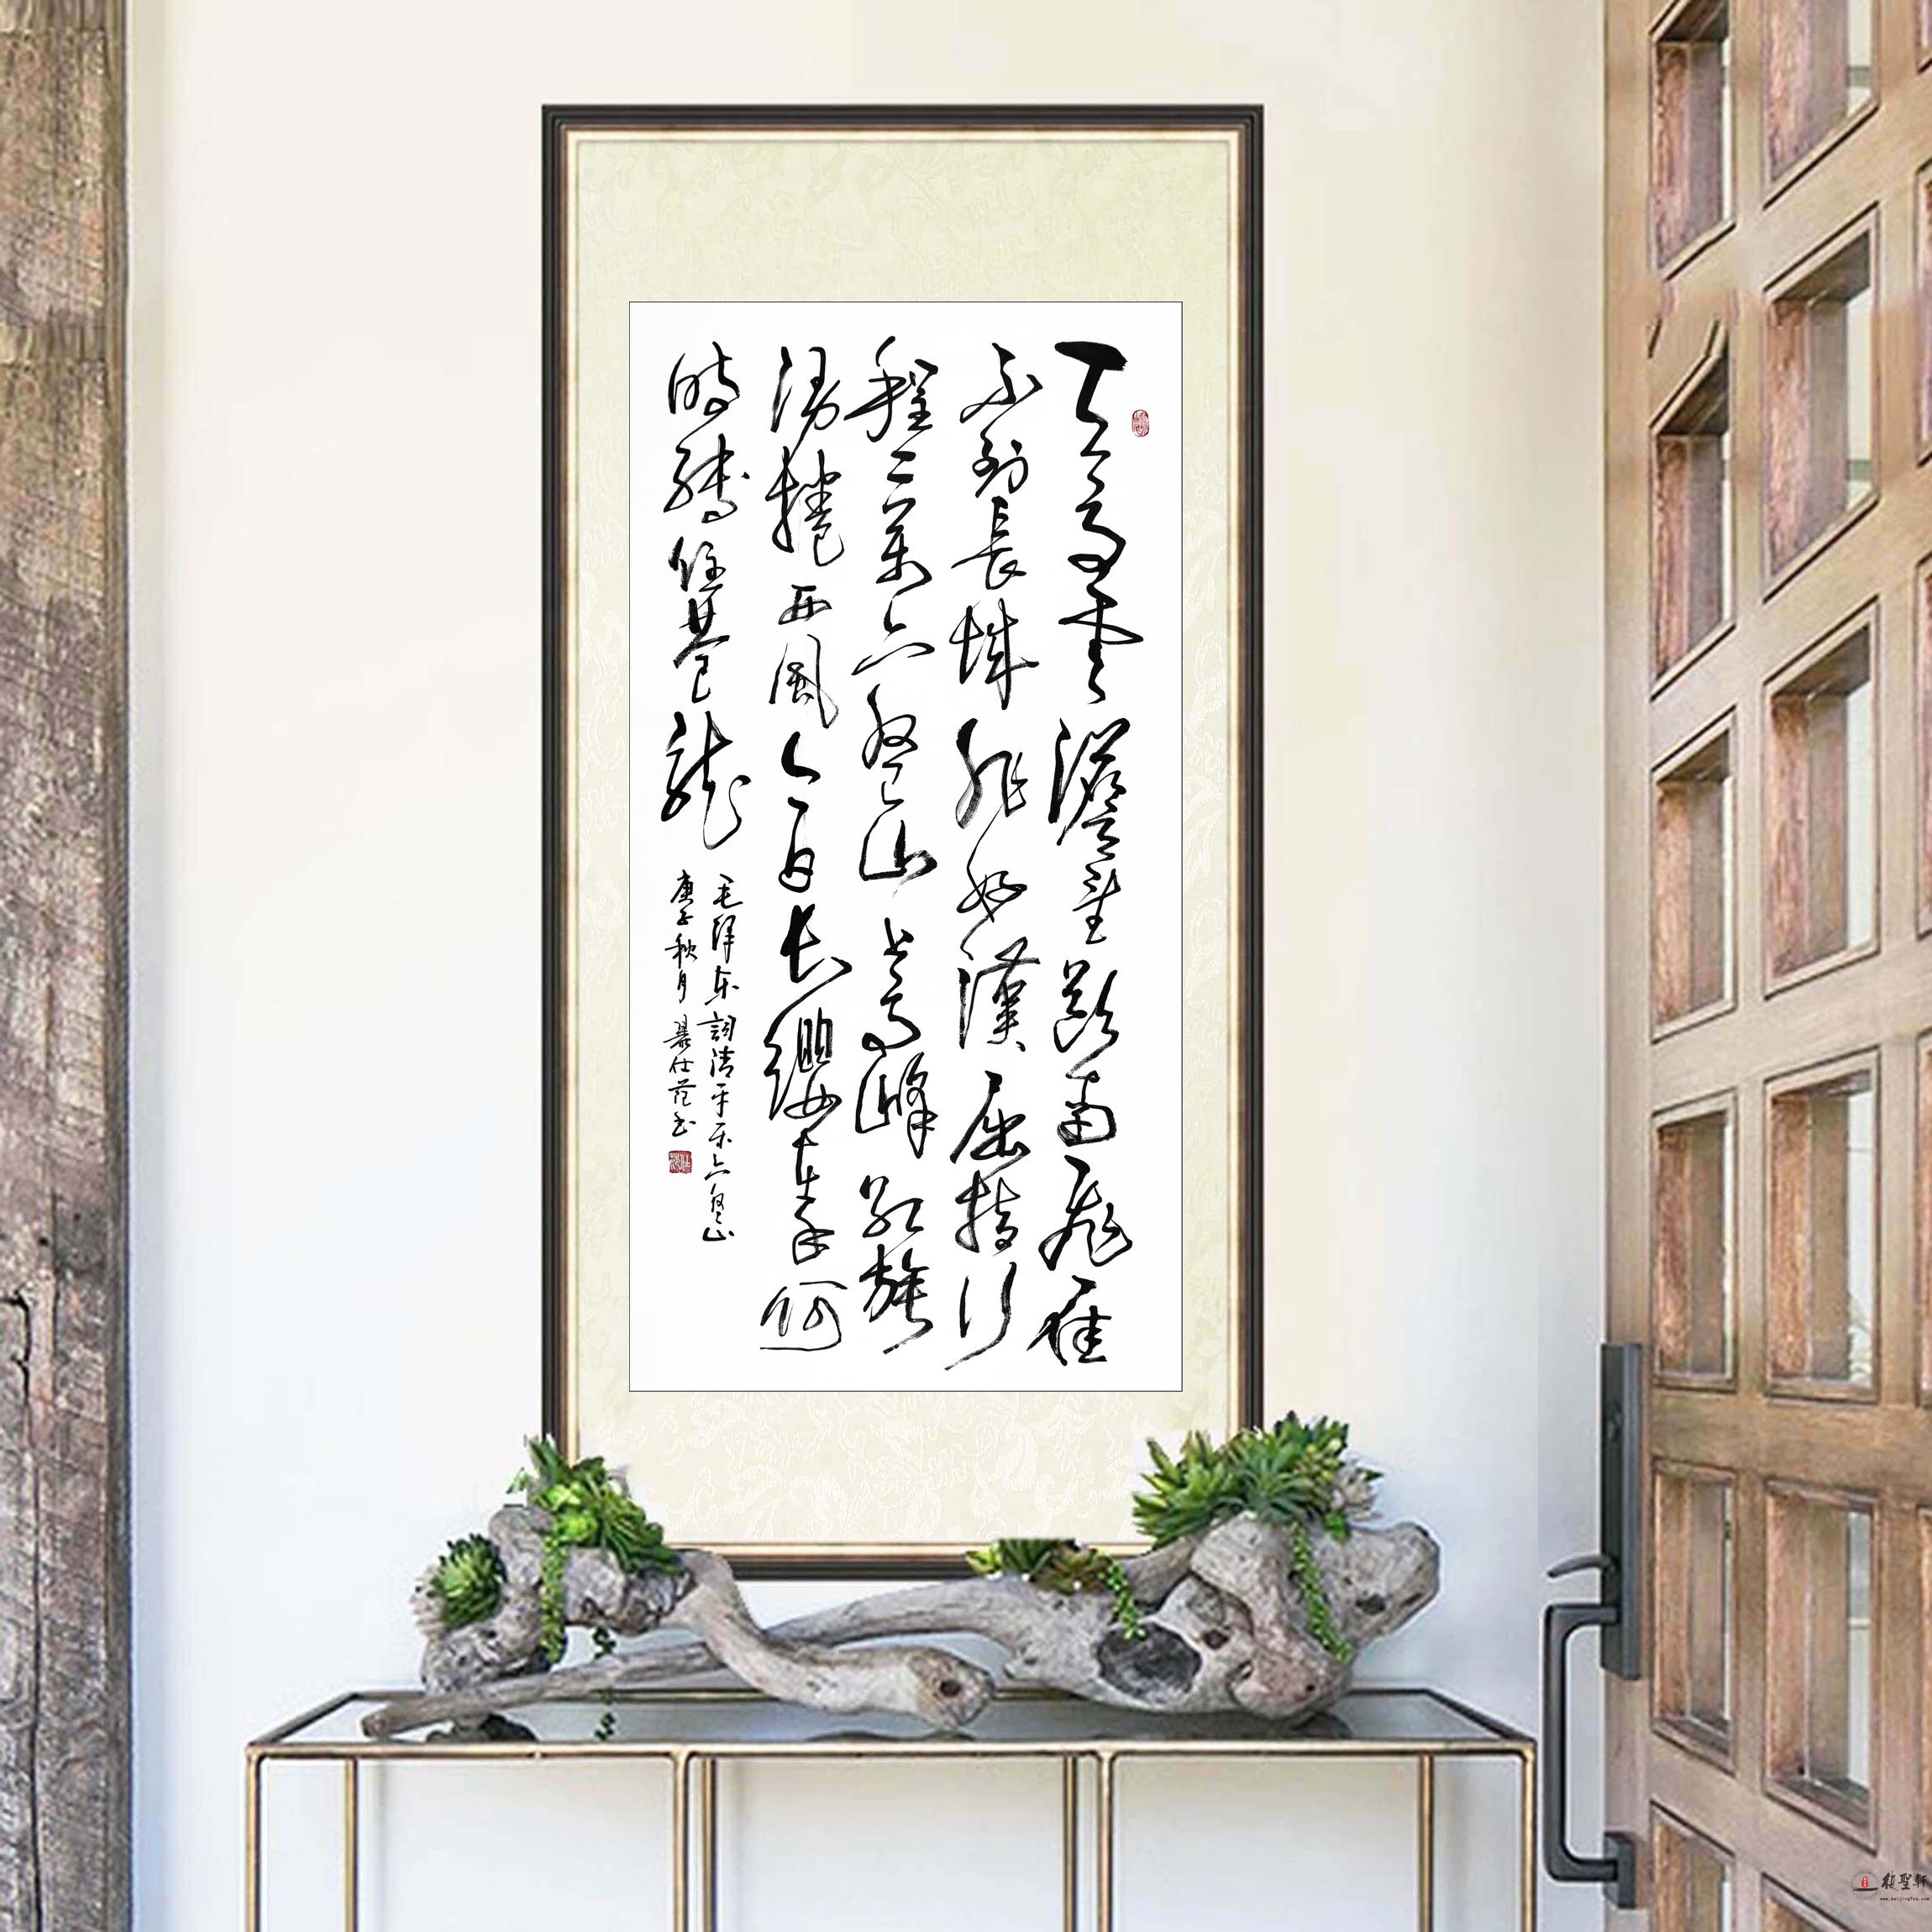 天高雲澹望斷南飛雁
不到長城非好漢屈指行
程二萬六盤山上高峰紅旗
漫捲西風今日长纓在手何
時縛住蒼龍
毛澤东詞清平乐六盤山
庚子秋月 仕范书
聖軒